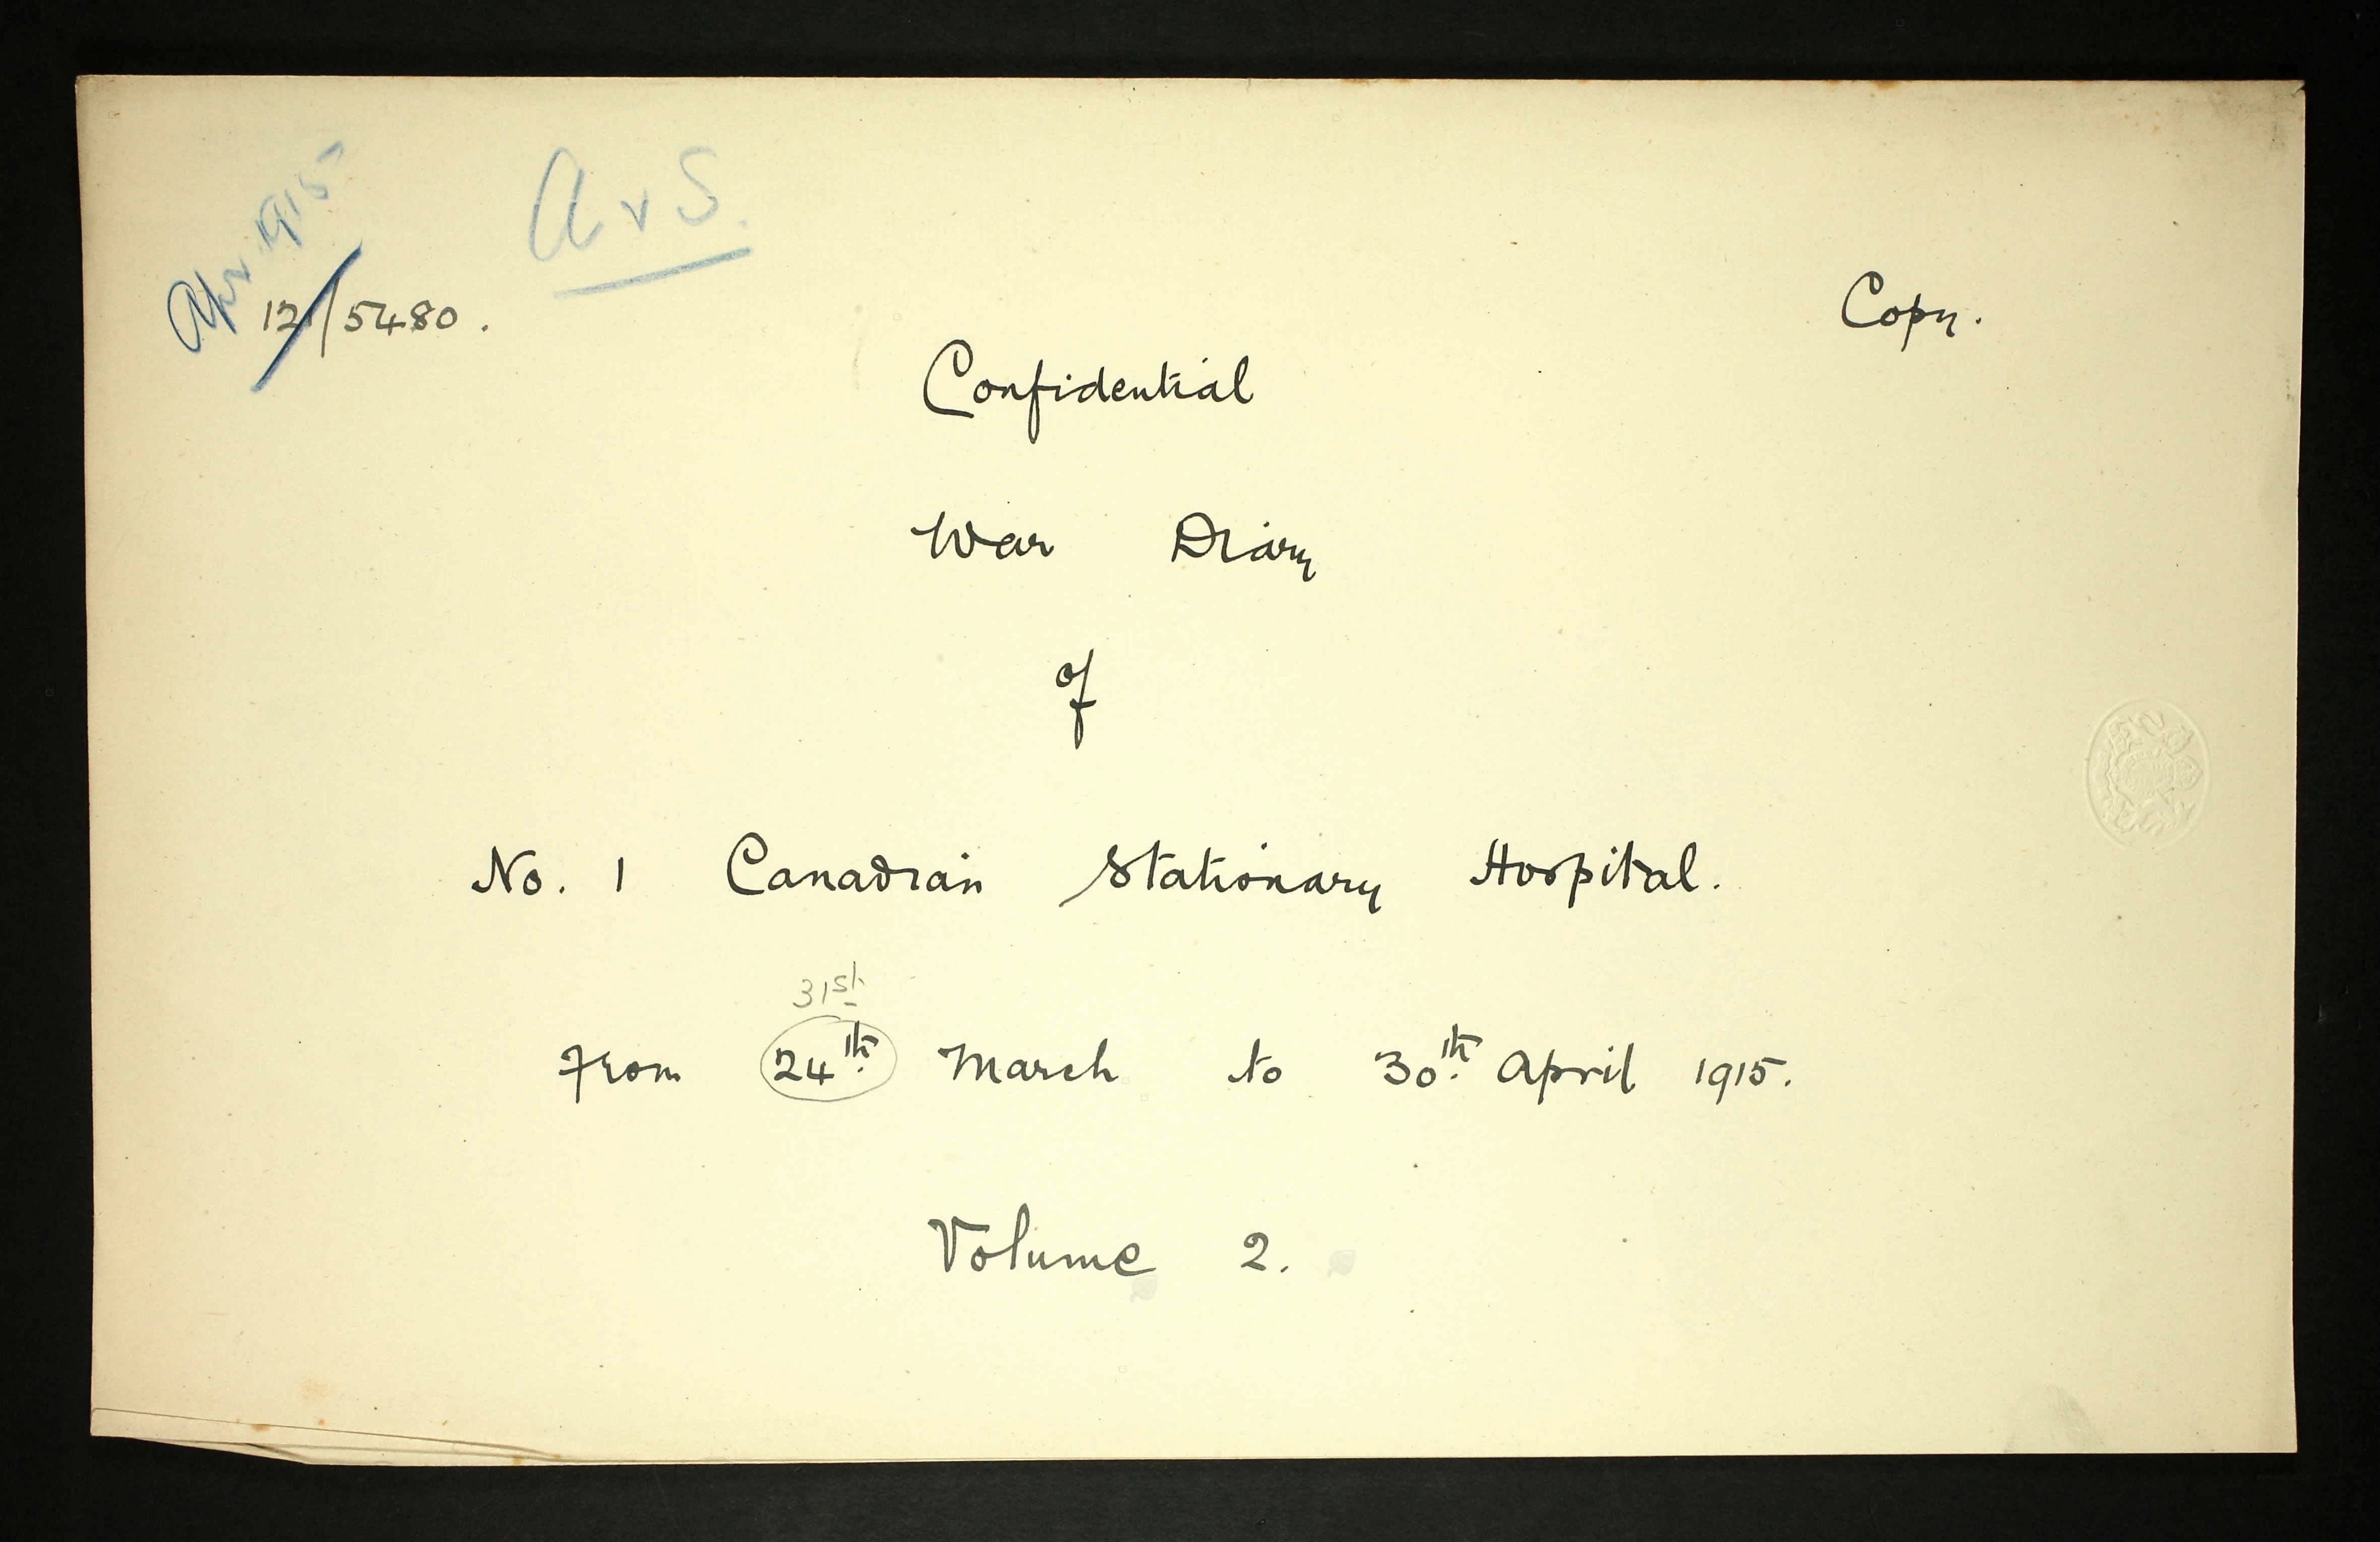 Apr 1915
A & S.
121/5480.
Copy.
Confidential
War Diary
of
No. 1 Canadian Stationary Hospital.
31st
From 24th March to 30th April 1915.
Volume 2.